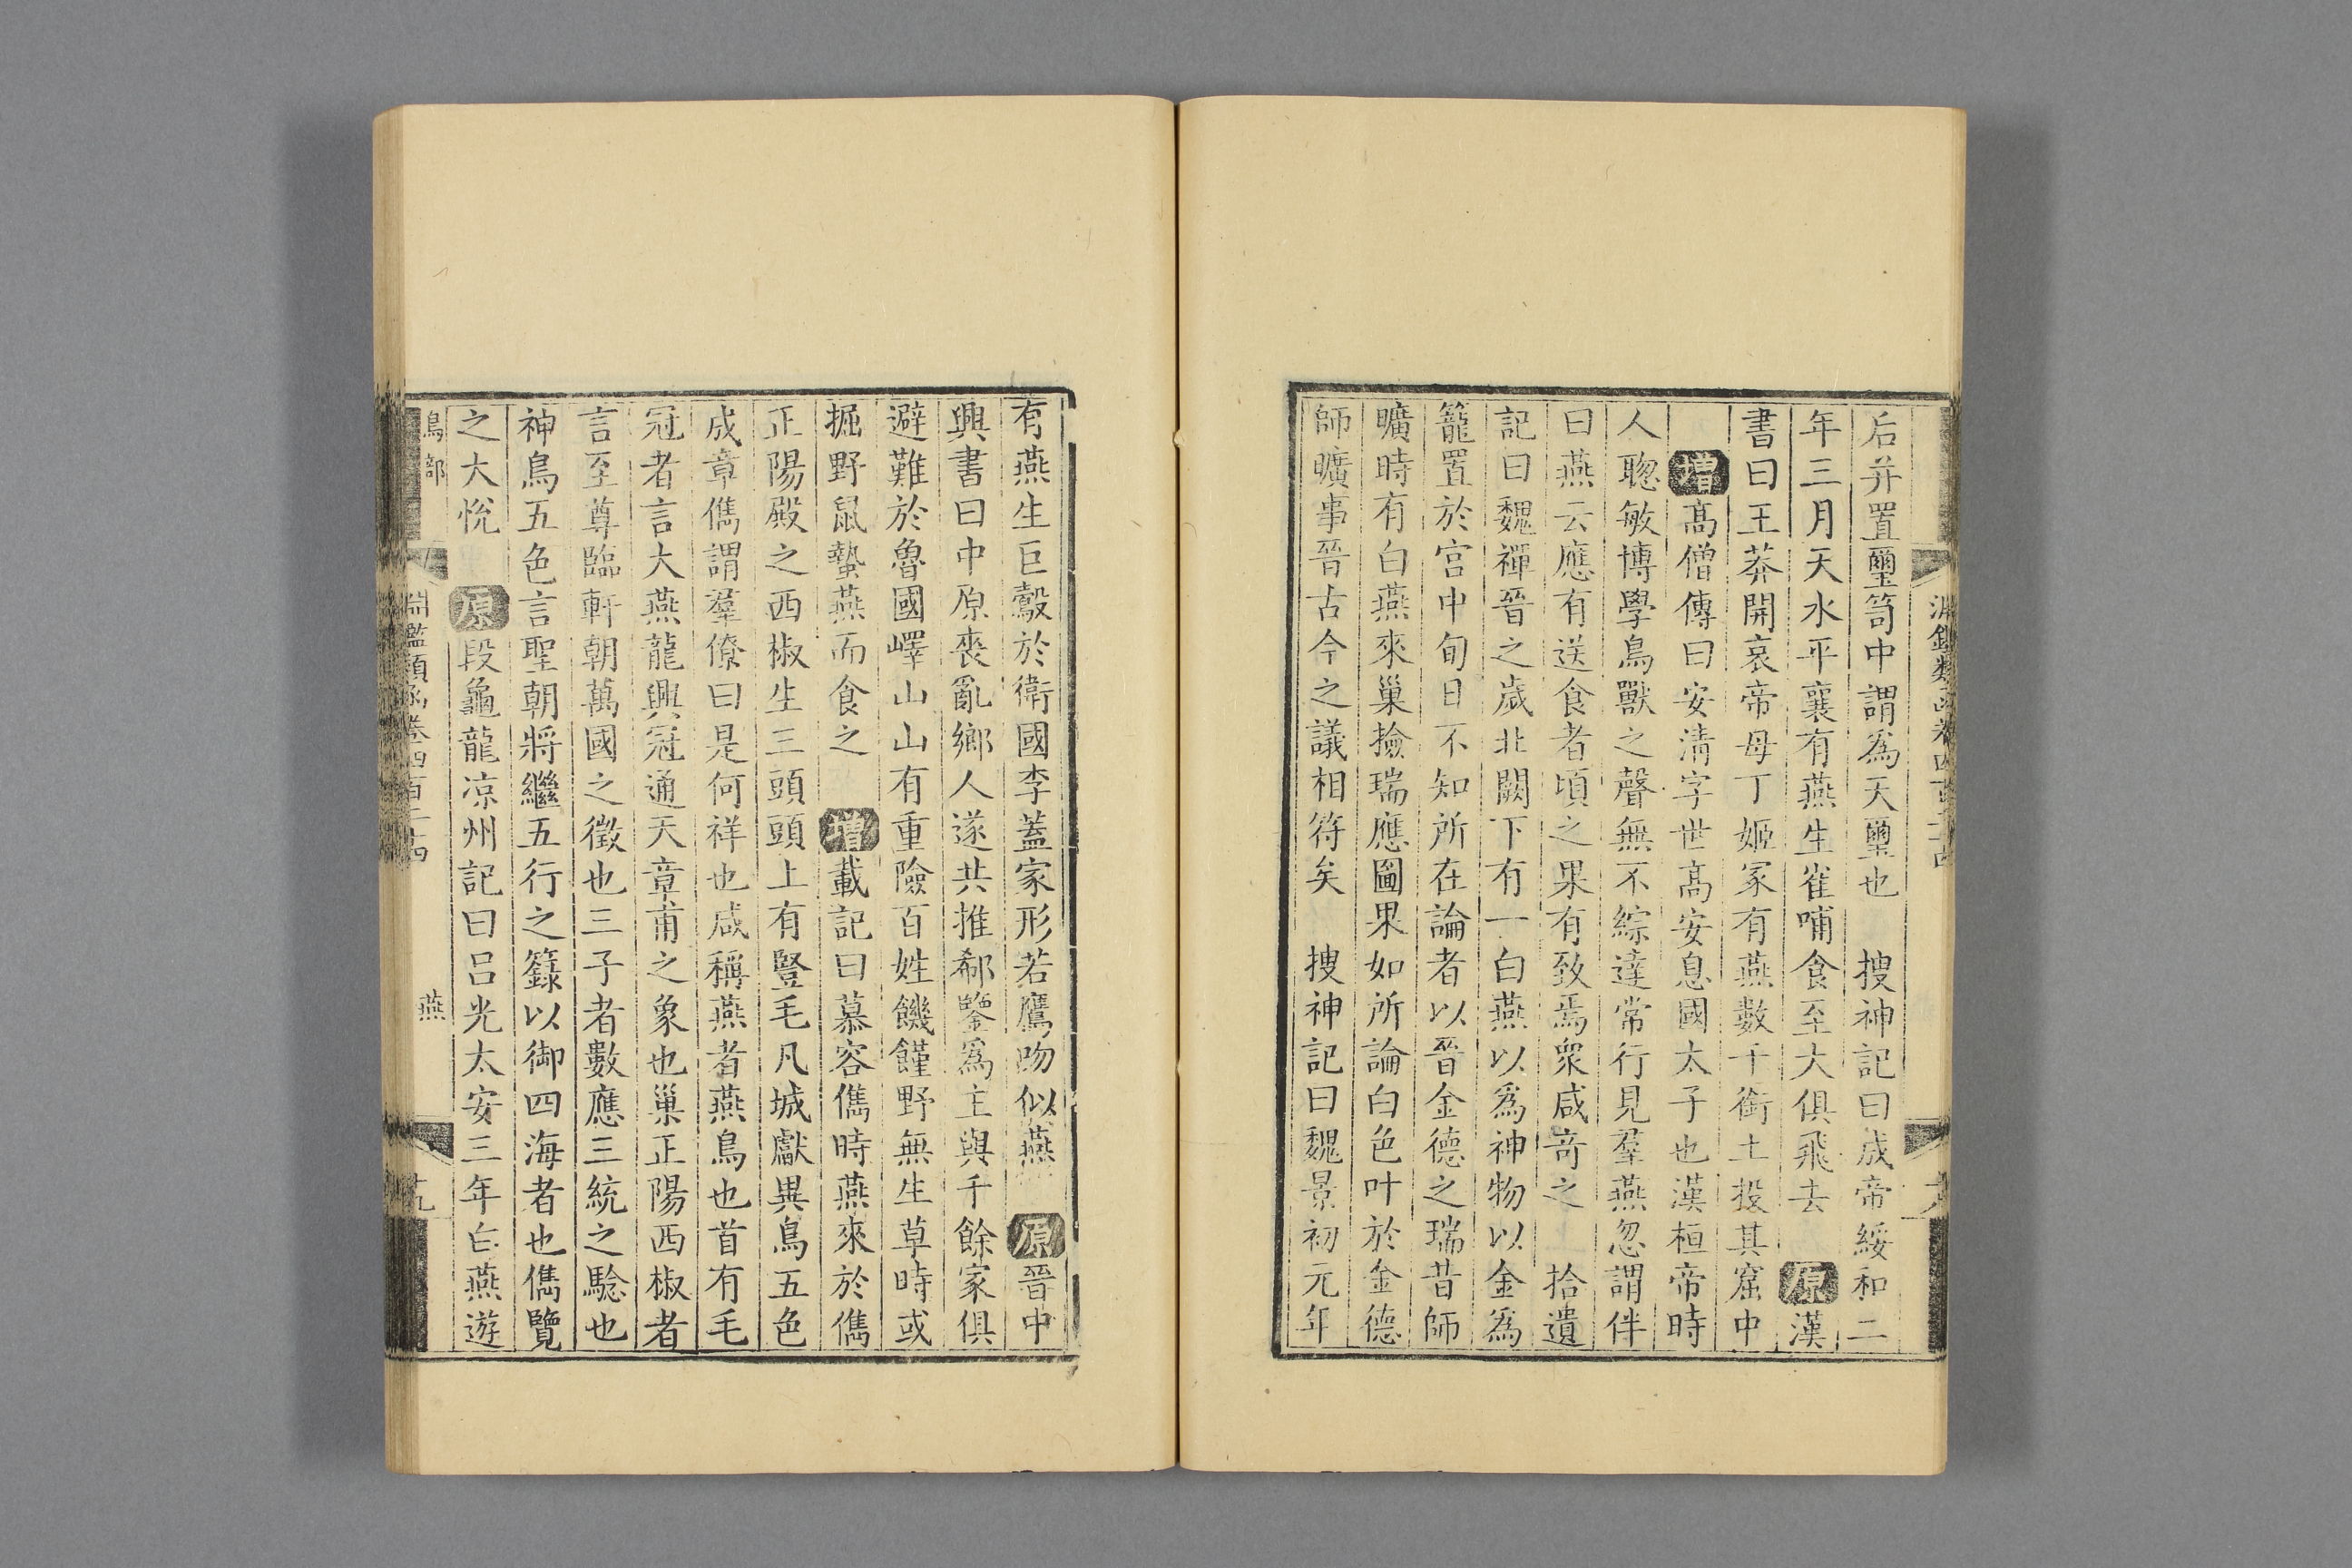 后并置璽笥中謂爲天璽也　搜神記曰成帝綏和二
年三月天水平襄有燕生雀哺食至大俱飛去　原漢
書曰王莽開哀帝母丁姬冢有燕數千銜土投其窟中
增高僧傳曰安清字世高安息國太子也漢桓帝時
人聰敏博學鳥獸之聲無不綜達常行見羣燕忽謂伴
曰燕云應有送食者頃之果有致焉衆咸竒之　拾遺
記曰魏禪晉之歲北闕下有一白燕以爲神物以金爲
籠置於宮中旬日不知所在論者以晉金德之瑞昔師
曠時有白燕來巢撿瑞應圖果如所論白色叶於金德
師曠事晉古今之議相符矣　搜神記曰魏景初元年
有燕生巨鷇於衛國李蓋家形若鷹吻似燕　原晉中
興書曰中原喪亂鄉人遂共推郗鑒爲主與千餘家俱
避難於魯國嶧山山有重險百姓饑饉野無生草時或
掘野鼠蟄燕而食之　增載記曰慕容儁時燕來於儁
正陽殿之西椒生三頭頭上有豎毛凡城獻異鳥五色
成章儁謂羣僚曰是何祥也咸稱燕者燕鳥也首有毛
冠者言大燕龍興冠通天章甫之象也巢正陽西椒者
言至尊臨軒朝萬國之徵也三子者數應三統之驗也
神鳥五色言聖朝將繼五行之籙以御四海者也儁覽
之大悅　原段龜龍凉州記曰呂光太安三年白燕遊
鳥部
燕